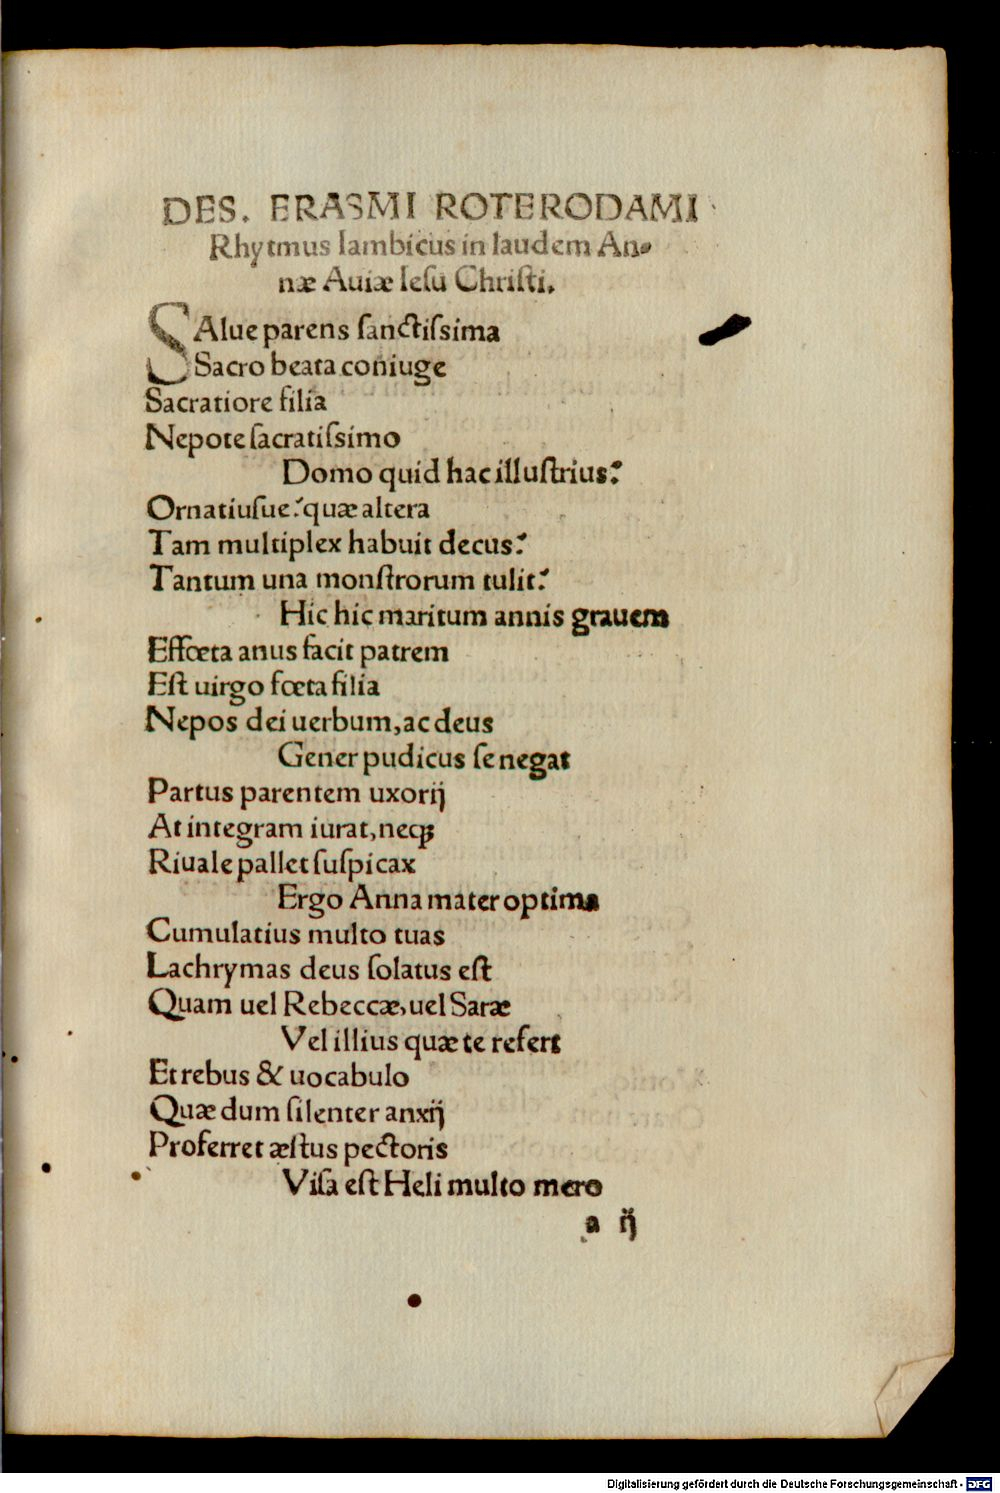 DES. ERASMI ROTERODAMI
Rhytmus Iambicus in laudem An⸗
næ Auiæ Iesu Christi.
SAlue parens sanctissima
Sacro beata coniuge
Sacratiore filia
Nepote sacratissimo
Domo quid hac illustrius?
Ornatiusue? quæ altera
Tam multiplex habuit decus?
Tantum una monstrorum tulit?
Hic hic maritum annis grauem
Effœta anus facit patrem
Est uirgo fœta filia
Nepos dei uerbum, ac deus
Gener pudicus se negat
Partus parentem uxorij
At integram iurat, neqꝫ
Riuale pallet suspicax
Ergo Anna mater optima
Cumulatius multo tuas
Lachrymas deus solatus est
Quam uel Rebeccæ, uel Saræ
Vel illius quæ te refert
Et rebus & uocabulo
Quæ dum silenter anxij
Proferret æstus pectoris
Visa est Heli multo mero
a ij
Digitalisierung gefördert durch die Deutsche Forschungsgemeinschaft - DFG